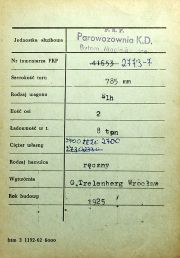 P.K.P.
Jednostka służbowa Parowozownia K.D.
Bytom
Nr inwentarza PKP 41653 2773-7
Szerokość toru 785 mm
Rodzaj wagonu
Ilość osi 2
Ładowność w t. 8 ton
Ciężar własny 2700
Rodzaj hamulca ręczny
Wytwórnia G.Trelenberg Wrocław
Rok budowy 1925